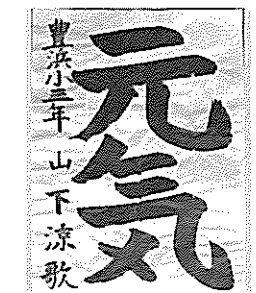 元気
豊浜小三年 山下涼歌